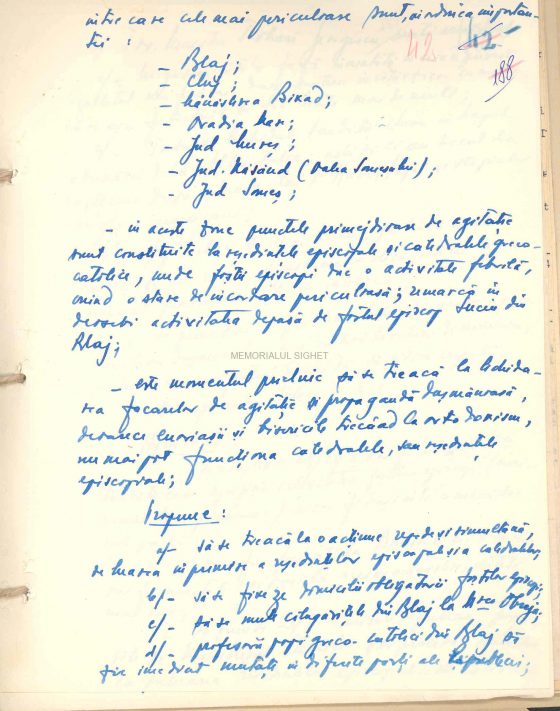 intre care cele mai periculoase sunt, in ordinea importan-
tii :
42 42
188
- Blaj;
- Cluj;
- Mânăstirea Bixad;
- Oradia Mare;
- Jud Mureș;
- Jud. Năsăud (Valea Someșului);
- Jud Someș;
- in aceste zone punctele primejdioase de agitație
sunt constituite la reședintele episcopale și catedralele greco-
catolice, unde foștii episcopi duc o activitate febrilă,
creind o stare de incordare periculoasă; remarcă in
deosebi activitatea depusă de fostul episcop Suciu din
Blaj;
MEMORIALUL SIGHET
- este momentul prielnic să se treacă la lichida-
rea focarelor de agitație și propagandă dușmănoasă,
deoarece enoriașii și bisericile trecând la ortodoxism,
nu mai pot funcționa catedralele, sau reședintele
episcopale;
Propune :
a/- să se treacă la o acțiune repede și simultană,
de luarea in primire a reședintelor episcopale și a catedralelor;
b/- să se fixeze domicilii obligatorii foștilor episcopi;
c/- să se mute călugărițele din Blaj la Mrea Obreja;
d/- profesorii popi greco-catolici din Blaj să
fie imediat mutați in diferite părți ale republicii;